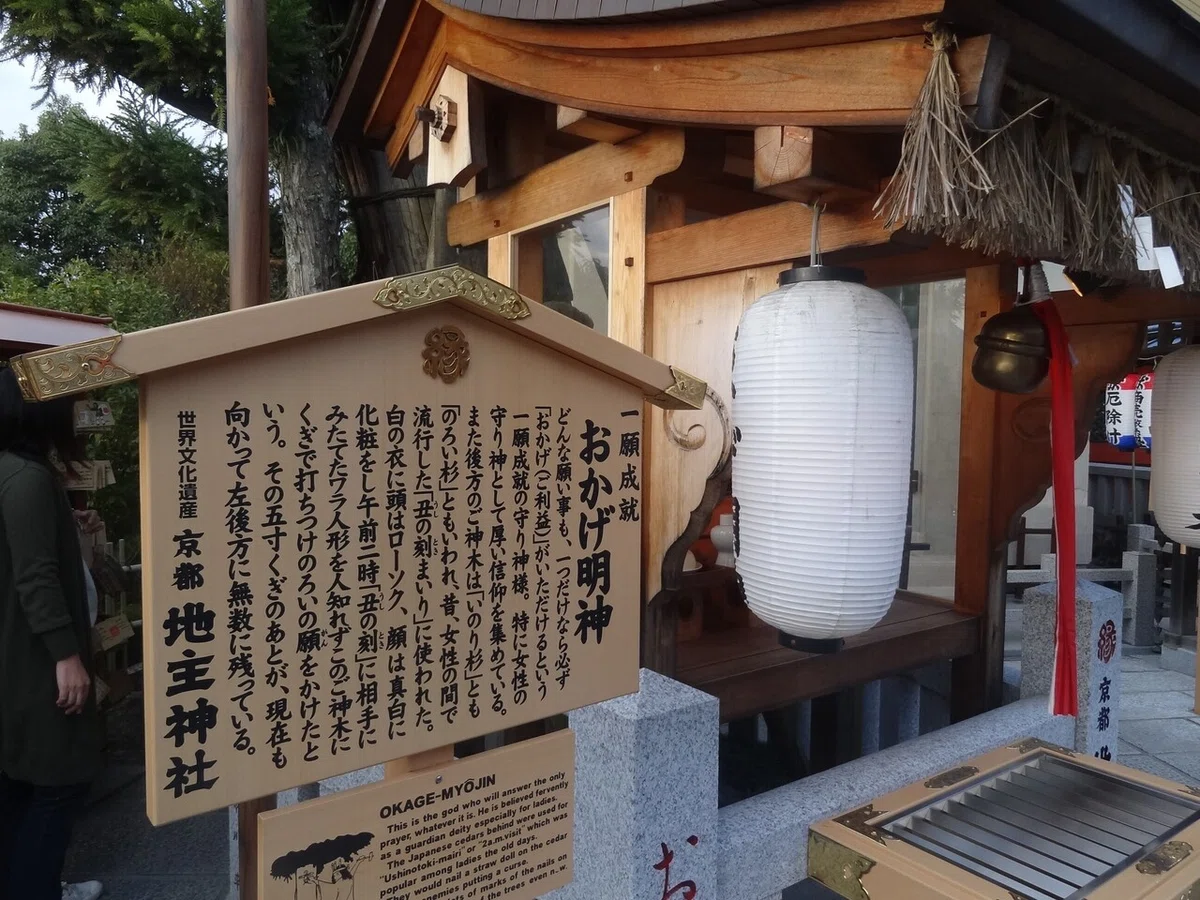 一願成就
おかげ明神
どんな願い事も、一つだけなら必ず
「おかげ(ご利益)」がいただけるという
一願成就の守り神様。特に女性の
守り神として厚い信仰を集めている。
また後方のご神木は「いのり杉」とも
「のろい杉」ともいわれ、昔、女性の間で
流行した「丑の刻まいり」に使われた。
白の衣に頭はローソク、顔は真白に
化粧をし午前二時「丑の刻」に相手に
みたてたワラ人形を人知れずこのご神木に
くぎで打ちつけのろいの願をかけたと
いう。その五寸くぎのあとが、現在も
向かって左後方に無数に残っている。
世界文化遺産 京都 地主神社
OKAGE-MYŌJIN
This is the god who will answer the only
prayer, whatever it is. He is believed fervently
as a guardian deity especially for ladies.
The Japanese cedars behind were used for
"Ushinotoki-mairi" or "2a.m.visit" which was
popular among ladies the old days.
They would nail a straw doll on the cedar
enemies putting a curse.
of marks of the nails on
of the trees even
縁 京都
お
厄除